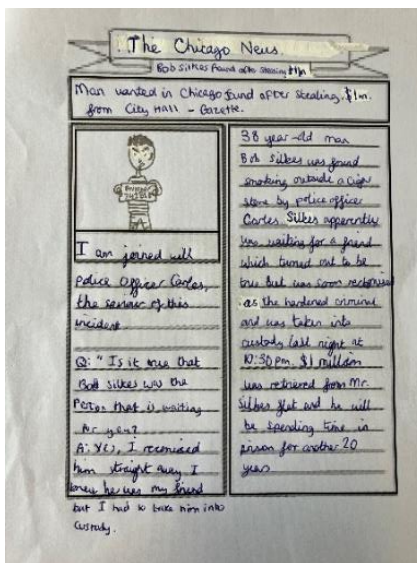 The Chicago News.
Bob Silkes found after stealing $1m
Man wanted in Chicago found after stealing $1m.
from City Hall - Gazette.
I am joined with
police officer Carles,
the saviour of this
incident.
Q: "Is it true that
Bob Silkes was the
person that is waiting
for you?
A: Yes, I recognised
him straight away I
knew he was my friend
but I had to take him into
custody.
38 year-old man
Bob Silkes was found
smoking outside a cigar
store by police officer
Carles. Silkes apparently
was waiting for a friend
which turned out to be
true but was soon recognised
as the hardened criminal
and was taken into
custody last night at
10:30pm. $1 million
was retrieved from Mr.
Silkes flat and he will
be spending time in
prison for another 20
years